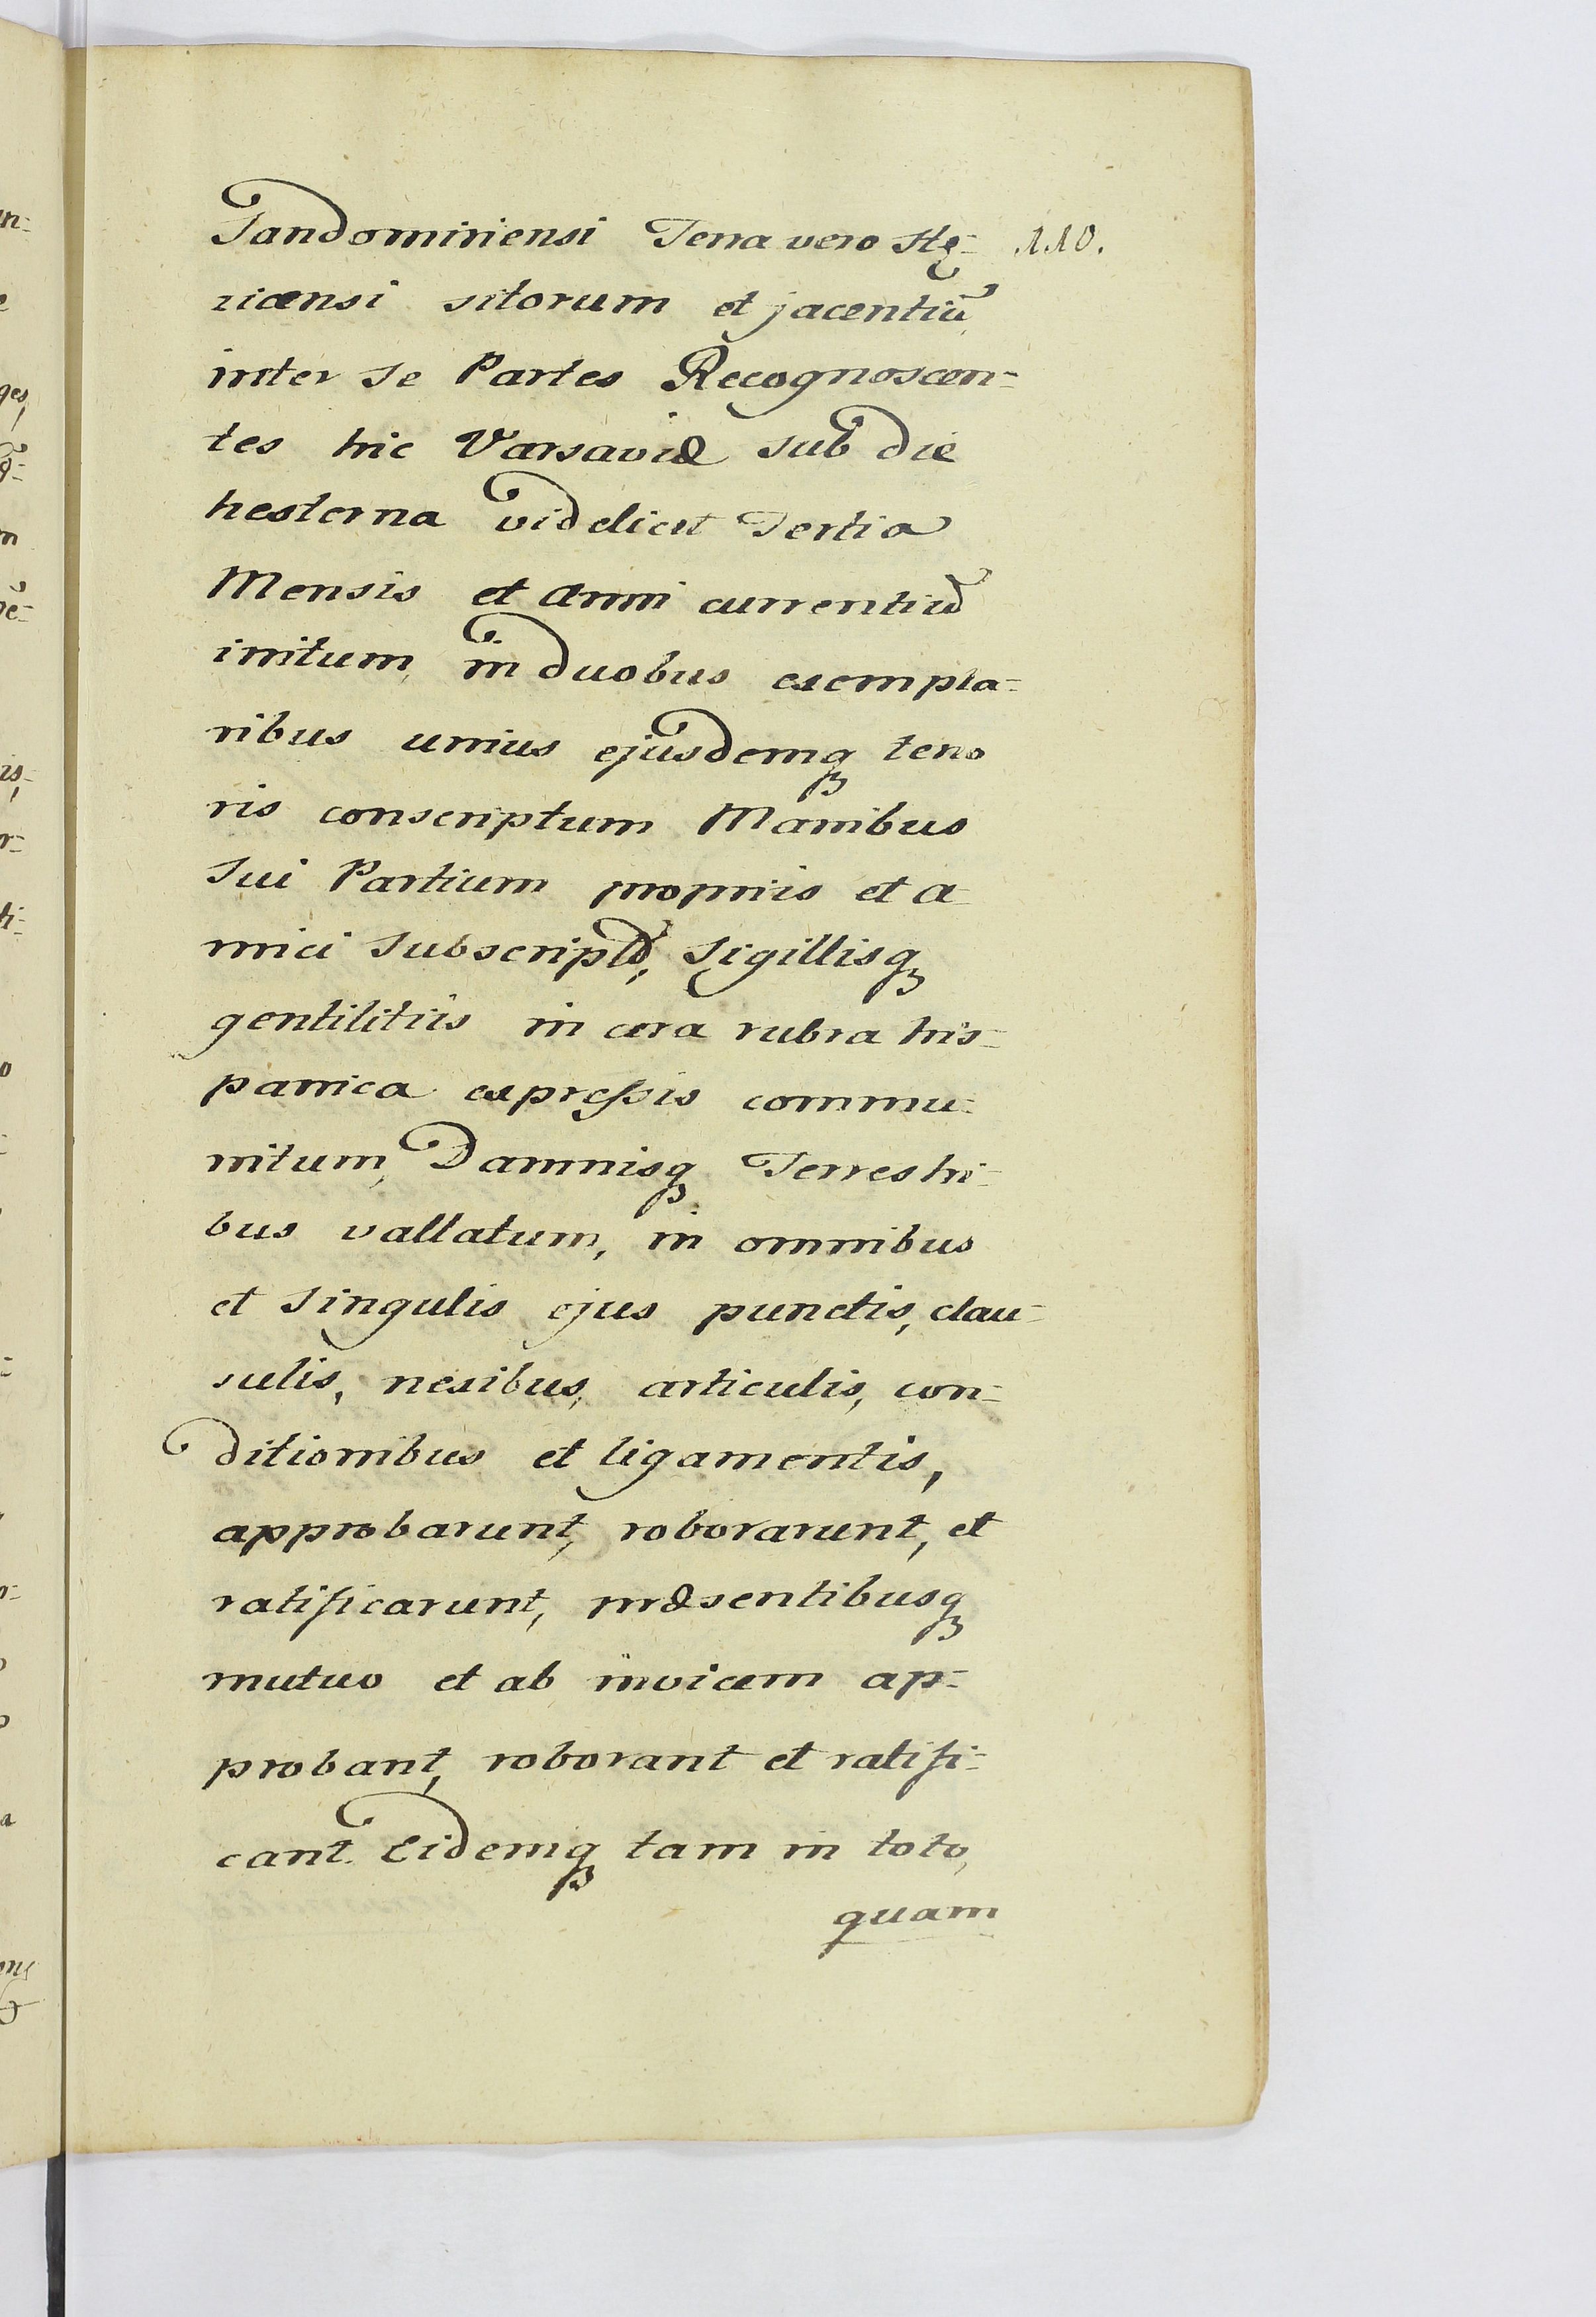 Sandomiriensi Terra vero Stę- 110.
zicensi sitorum et jacentiũ
inter se Partes Recognoscen-
tes hic Varsaviæ sub die
hesterna videlicet Tertia
Mensis et anni currentiũ
initum, in duobus exempla-
ribus unius ejusdemq₃ teno
ris conscriptum Manibus
Sui Partium propriis et a
mici subscriptũ, Sigillisq₃
gentilitiis in cera rubra his-
panica expressis commu-
nitum, Damnisq₃ Terrestri-
bus vallatum, in omnibus
et singulis ejus punctis, clau-
sulis, nexibus, articulis, con-
ditionibus et ligamentis,
approbarunt, roborarunt, et
ratificarunt, præsentibusq₃
mutuo et ab invicem ap-
probant, roborant et ratifi-
cant. Eidemq₃ tam in toto,
quam